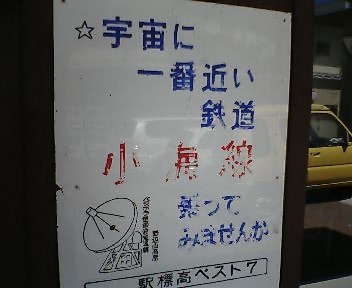 ☆宇宙に
一番近い
鉄道
小海線
乗って
みませんか
野辺山高原
駅標高ベスト7